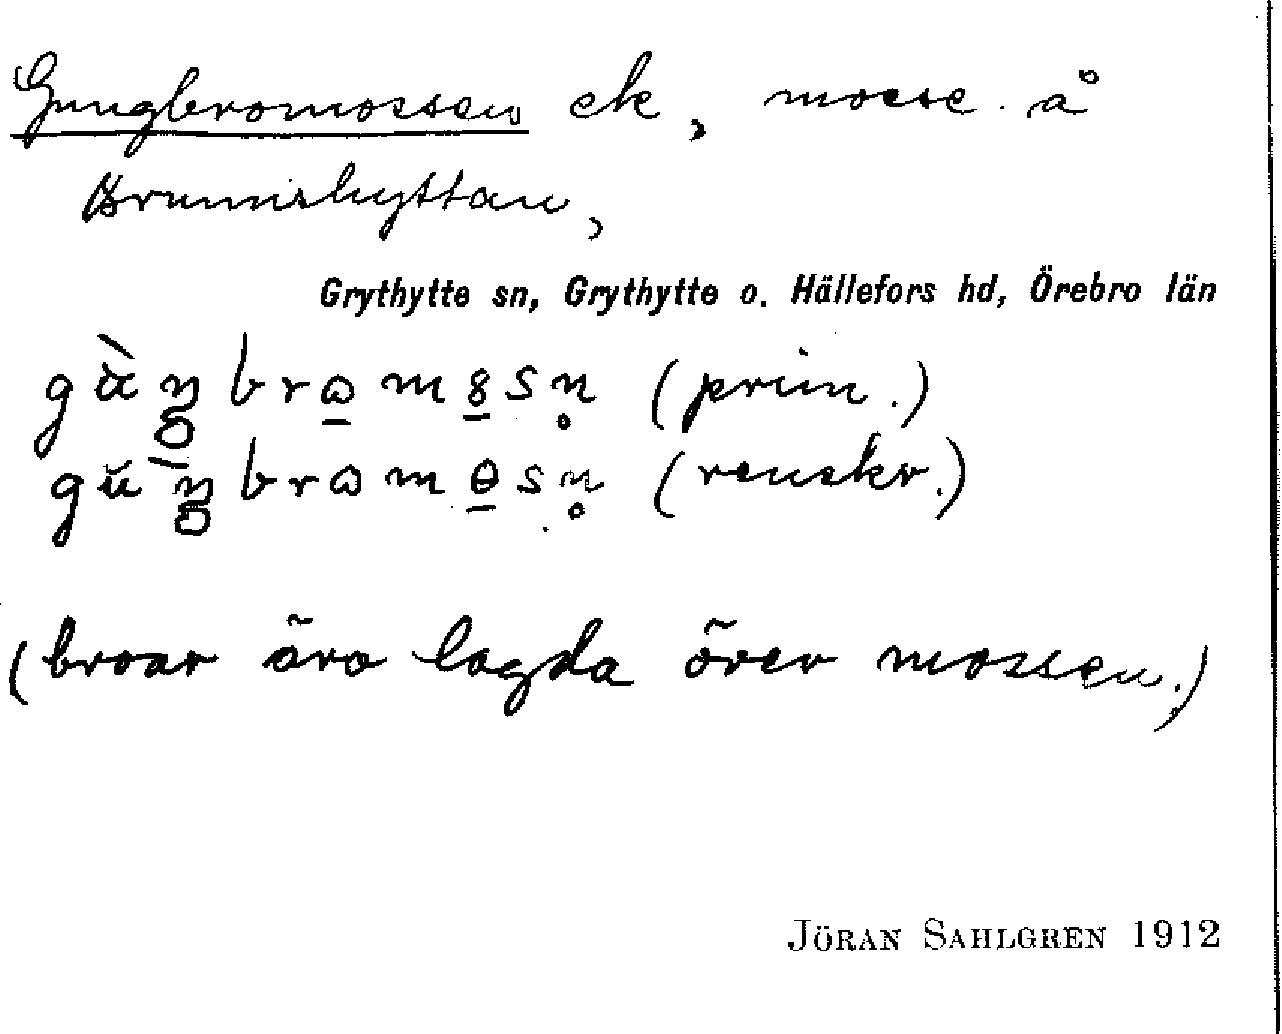 Gungbromossen ek, mosse å
Brunnshyttan,
Grythytte sn, Grythytte o. Hällefors hd, Örebro län
(prim.)
(renskr.)
(broar äro lagda över mossen.)
JÖRAN SAHLGREN 1912